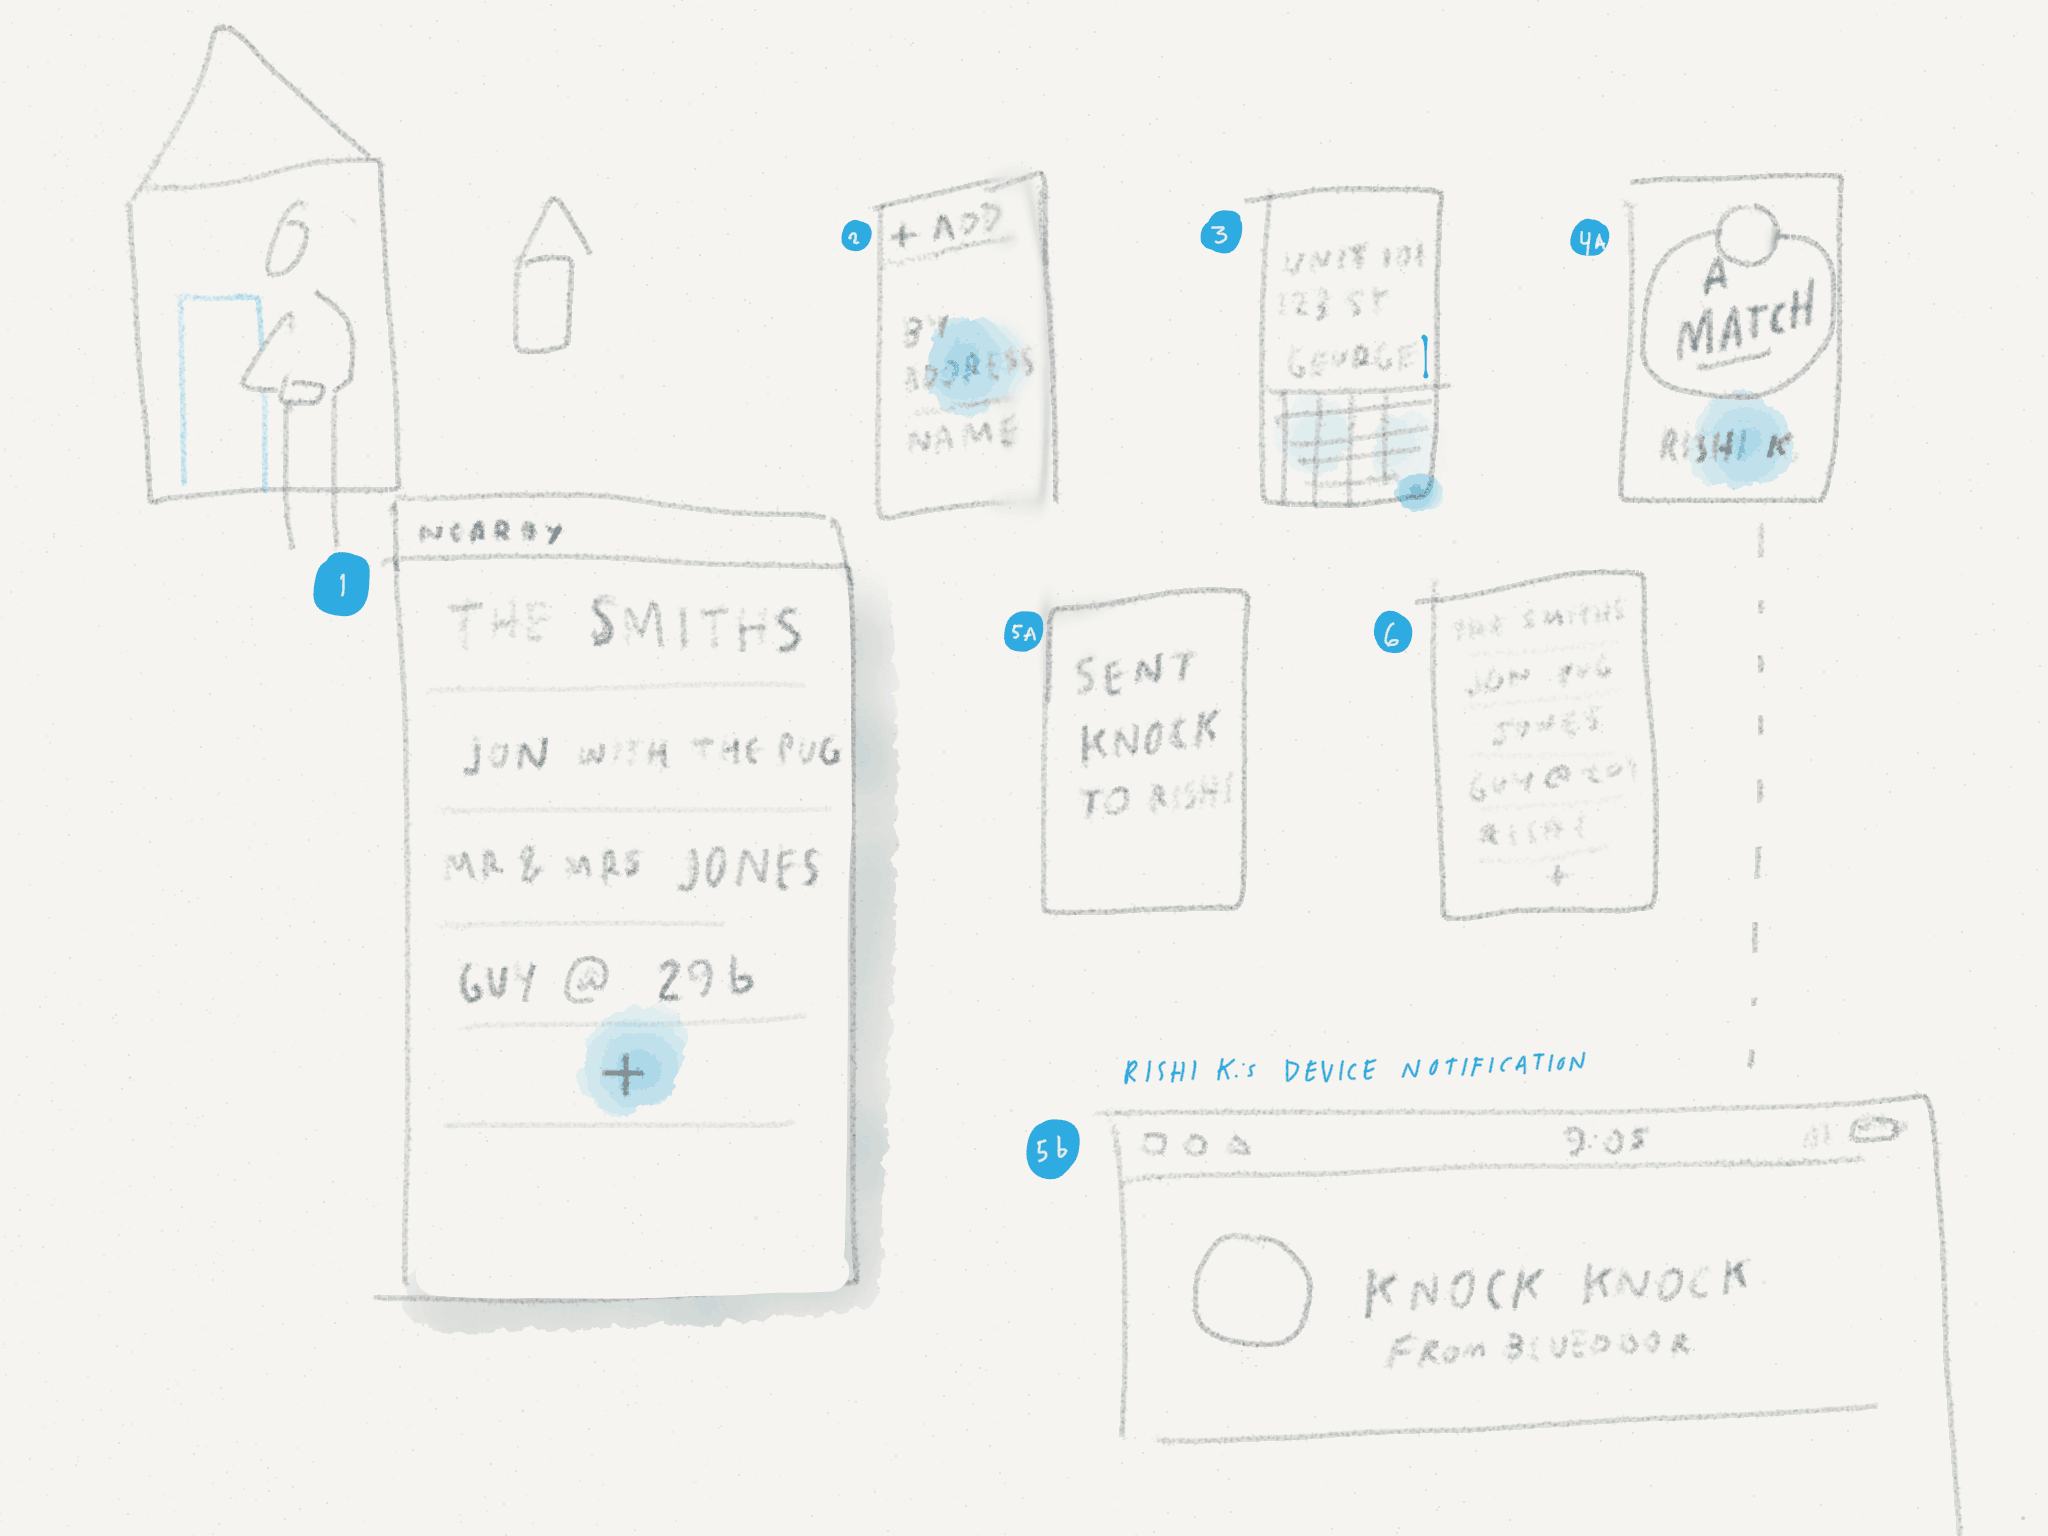 1
NEARBY
THE SMITHS
JON WITH THE PUG
MR & MRS JONES
GUY @ 29b
+
2
+ ADD
BY
ADDRESS
NAME
3
UNIT 101
123 ST
GEORGE
4A
A
MATCH
RISHI K
5A
SENT
KNOCK
TO RISHI
6
THE SMITHS
JON PUG
JONES
GUY @
RISHI
+
RISHI K.'s DEVICE NOTIFICATION
5b
9:05
KNOCK KNOCK
FROM BLUEDOOR